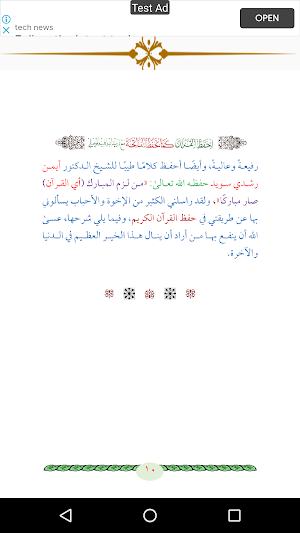 Test Ad
tech news
OPEN
احفظ القرآن كما تحفظ الفاتحة
رفيعةً وعاليةً، وأيضًا أحفظ كلامًا طيبًا للشيخ الدكتور أيمن
رشدي سويد حفظه الله تعالى: «من لزم المبارك (أي القرآن)
صار مباركًا»، ولقد راسلني الكثير من الإخوة والأحباب يسألوني
بها عن طريقتي في حفظ القرآن الكريم، وفيما يلي شرحها، عسى
الله أن ينفع بها من أراد أن ينال هذا الخير العظيم في الدنيا
والآخرة.
١٠